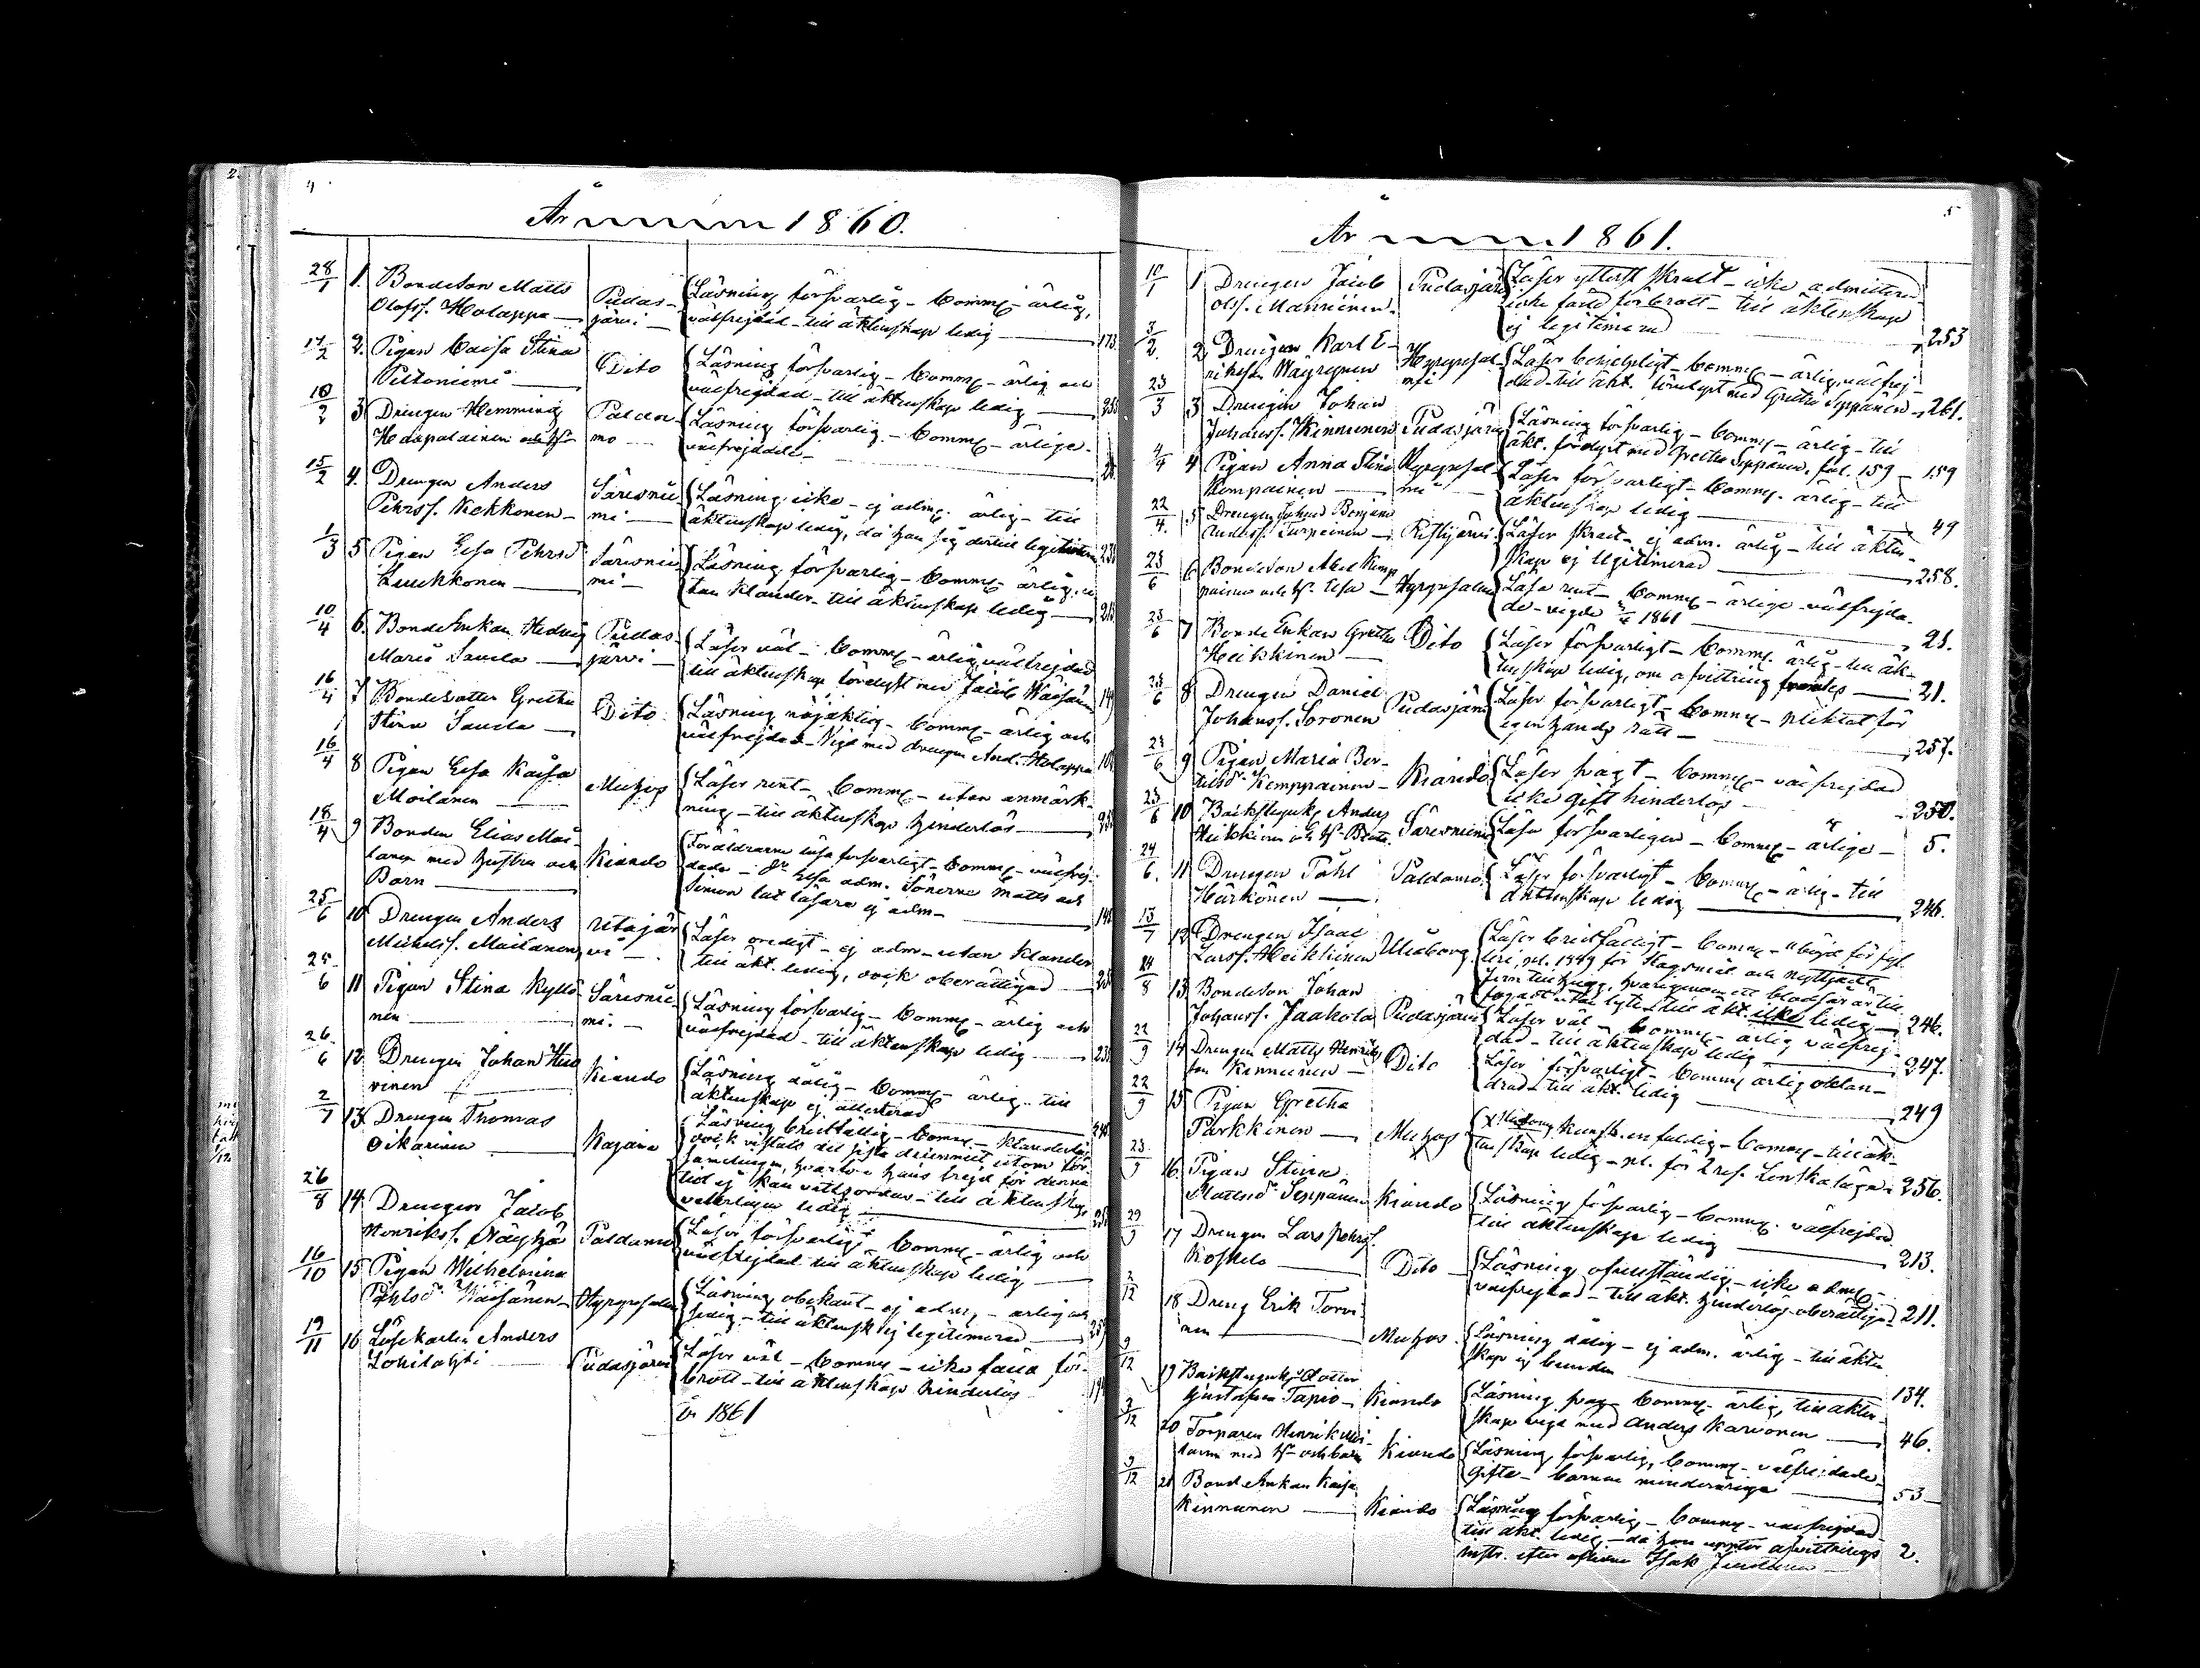 År 1860.
28/1 1. Bondeson Matts
Olofss. Holappa
Pudas-
järvi
Läsning försvarlig - Comm. - ärlig,
välfrejdad - till äktenskap ledig 173
14/2 2. Pigan Caisa Stina
Peltoniemi
Dito
Läsning försvarlig - Comm. - ärlig och
välfrejdad - till äktenskap ledig
18/2 3 Drengen Hemming
Haapalainen
Paldamo
Läsning försvarlig - Comm. - ärlige
välfrejdade -
15/2 4. Drengen Anders
Pehrss. Kekkonen
Säresnie
mi
Läsning icke - ej adm. ärlig - till
äktenskap ledig, då han sig dertill legitimerar
1/3 5 Pigan Elsa Pehrsd.
Luukkonen
Säresnie
mi
Läsning försvarlig - Comm. - ärlig, u
tan klander - till äktenskap ledig
10/4 6. Bonde Enkan Hedvig
Maria Saucla
Pudas-
järvi
Läser väl - Comm. - ärlig, välfrejdad
till äktenskap förelyst med Jacob Väisänen
16/4 7 Bondedotter Gretha
Stina Saucla
Dito
Läsning nöjaktig - Comm. - ärlig och
välfrejdad - Vigd med drengen And. Holappa
16/4 8 Pigan Elsa Kaisa
Moilanen
Muhos
Läser rent - Comm. - utan anmärk-
ning - till äktenskap hinderlös
18/4 9 Bonden Elias Moi-
lanen med hustru och
Barn
Kiando
Föräldrarne läsa försvarligt - Comm. - välfrej-
dade - Elsa adm. Sönerne Matts och
Simon lat läsare ej adm -
25/6 10 Drengen Anders
Michelss. Moilanen
Utajär
vi
Läser oredigt - ej adm - utan klander
till äkt. ledig, dock oberättigad
25/6 11 Pigan Stina Kyllö-
nen
Säresnie-
mi.
Läsning försvarlig - Comm. - ärlig och
välfrejdad - till äktenskap ledig
26/6 12 Drengen Johan
vinen
Kiando
Läsning dålig - Comm. - ärlig - till
äktenskap ej attesterad
2/7 13. Drengen Thomas
Oikarinen
Kajana
Läsning bristfällig - Comm. - klanderlös
dock vistats det sista decenniet utom för-
samlingen, hvarföre hans frejd för denna
tid ej kan vittsordas - till äktenskap
veterligen ledig
26/8 14. Drengen Jacob
Henrikss. Näyhjä
Paldamo
Läser försvarligt Comm. - ärlig och
välfrejdad till äktenskap ledig
16/10 15 Pigan Wilhelmina
Väisänen
Hyrynsalmi
Läsning obekant - ej adm. - ärlig och
ledig - till äktensk. ej legitimerad
19/11 16 Lösekarlen Anders
Lohilahti
Pudasjärvi
Läser väl - Comm. - icke fälld för
brott - till äktenskap hinderlös
År 1861
5
År 1861.
10/1 1 Drengen Jacob
Olss. Manninen.
Pudasjärvi
Läser ytterst skralt - icke admitterad
icke fälld för brott - till äktenskap
ej legitimerad 253
3/2. 2 Drengen Karl E-
riksson Väyrynen
Hyrynsal
mi
Läser behjelpligt - Comm. - ärlig, välfrej-
dad - till äkt. förelyst med Gretha Seppänen 261.
23/3 3 Drengen Johan
Johanss. Kinnunen
Pudasjärvi
Läsning försvarlig - Comm. - ärlig - till
äkt. förelyst med Gretha Seppänen, fol. 159 - 159
4/4 4 Pigan Anna Stina
Kemppainen
Hyrynsal
mi
Läser försvarligt - Comm. ärlig - till
äktenskap ledig 49
22/4. 5 Drengen Johan Benjam.
Anderss. Turpeinen
Ristijärvi
Läser skralt - ej adm. ärlig - till äkten-
skap ej legitimerad 258.
23/6 6 Bondeson Abel Kemp
painen och h. Elsa
Hyrynsalmi
Läsa rent - Comm. - ärlige välfrejda-
de - vigde 1861 21.
23/6 7 Bonde Enkan Gretha
Heikkinen
Dito
Läser försvarligt - Comm. ärlig - till äk-
tenskap ledig, om afvittring framtes 21.
23/6 8 Drengen Daniel
Johanss. Soronen
Pudasjärvi
Läser försvarligt - Comm. - pliktat för
egenhands rätt - 257.
23/6 9 Pigan Maria Ber-
tilsd. Kemppainen
Kiando
Läser svagt - Comm. - välfrejdad
icke gift hinderlös - 250.
23/6 10 Backstuguk. Anders
Heikkinen och h.
Säresniemi
Läsa försvarligen - Comm. - ärlige - 5.
24/6. 11 Drengen Påhl
Härkönen
Paldamo
Läser försvarligt - Comm. - ärlig - till
äktenskap ledig 246.
13/7 12 Drengen Isaac
Larss. Heikkinen
Uleåborg
Läser bristfälligt - Comm. - böjd för fyl-
leri, pl. 1859 för slagsmål och nyttjadt
246.
24/8 13. Bondeson Johan
Johanss. Jaakola
Pudasjärvi
Läser väl - Comm. - ärlig välfrej-
dad - till äktenskap ledig 247.
22/9 14 Drengen Matts Henriks
son Kinnunen
Dito
Läser försvarligt - Comm. ärlig oklan-
drad - till äkt. ledig 249
22/9 15 Pigan Gretha
Parkkinen
Muhos
kunsk. enfaldig - Comm. - till äk-
tenskap ledig - pl. för 2 resf. Lönskaläge - 256.
23/9 16. Pigan Stina
Mattsd. Seppänen
Kiando
Läsning försvarlig - Comm. välfrejdad
till äktenskap ledig 213.
29/9 17 Drengen Lars Pehrss.
Koskelo
Dito
Läsning ofullständig - icke adm. -
välfrejdad - till äkt. hinderlös oberättigad 211.
2/12 18 Dreng Erik Torvi
nen
Muhos
Läsning dålig - ej adm. ärlig - till äkten
skap ej bunden 134.
3/12 19 Backstuguk. dotter
Gustafva Tapio
Kiando
Läsning svag Comm. ärlig, till äkten-
skap vigd med Anders Karvonen 46.
3/12 20 Torparen Henrik Moi-
lanen med h. och barn
Kiando
Läsning försvarlig, Comm. - välfrejdade
Gifte - barnen minderåriga 53
3/12 21 Bond Enkan Kaisa
Kinnunen
Kiando
Läsning försvarlig - Comm. - välfrejdad
till äkt. ledig - då hon uppter afvittrings
instr. efter aflidne Isak Juntunen 2.